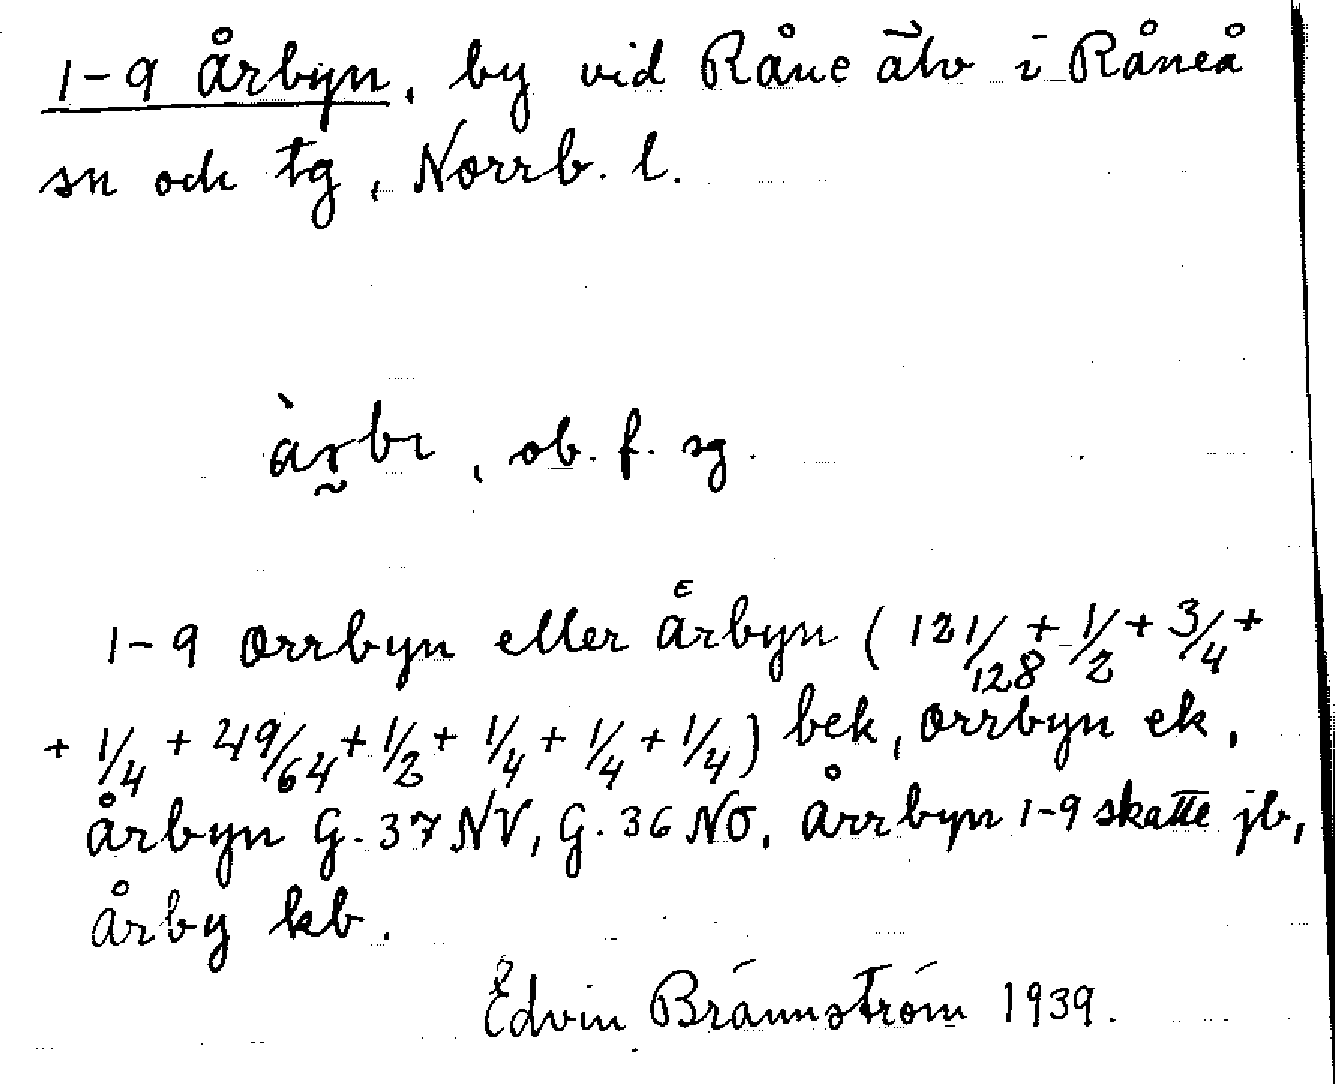 1-9 Årbyn, by vid Råne älv i Råneå
sn och tg, Norrb. l.
, ob. f. sg.
1-9 Orrbyn eller Årbyn (121/128 + 1/2 + 3/4 +
+ 1/4 + 49/64 + 1/2 + 1/4 + 1/4 + 1/4) bek, Orrbyn ek,
Årbyn G. 37 NV, G. 36 NO, Årrbyn 1-9 skatte jb,
Årby kb.
Edvin Brännström 1939.